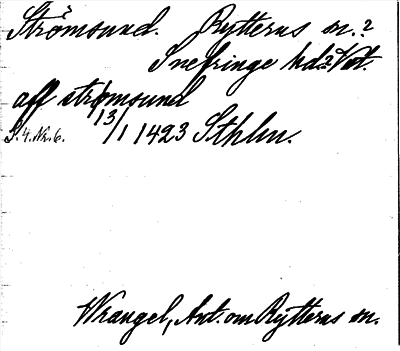 Strömsund. Rytterns sn.?
Snefringe hd? Vstm.
aff strömsund
S.4.Nr.6. 13/1 1423 Sthlm.
Wrangel, Ant. om Rytterns sn.